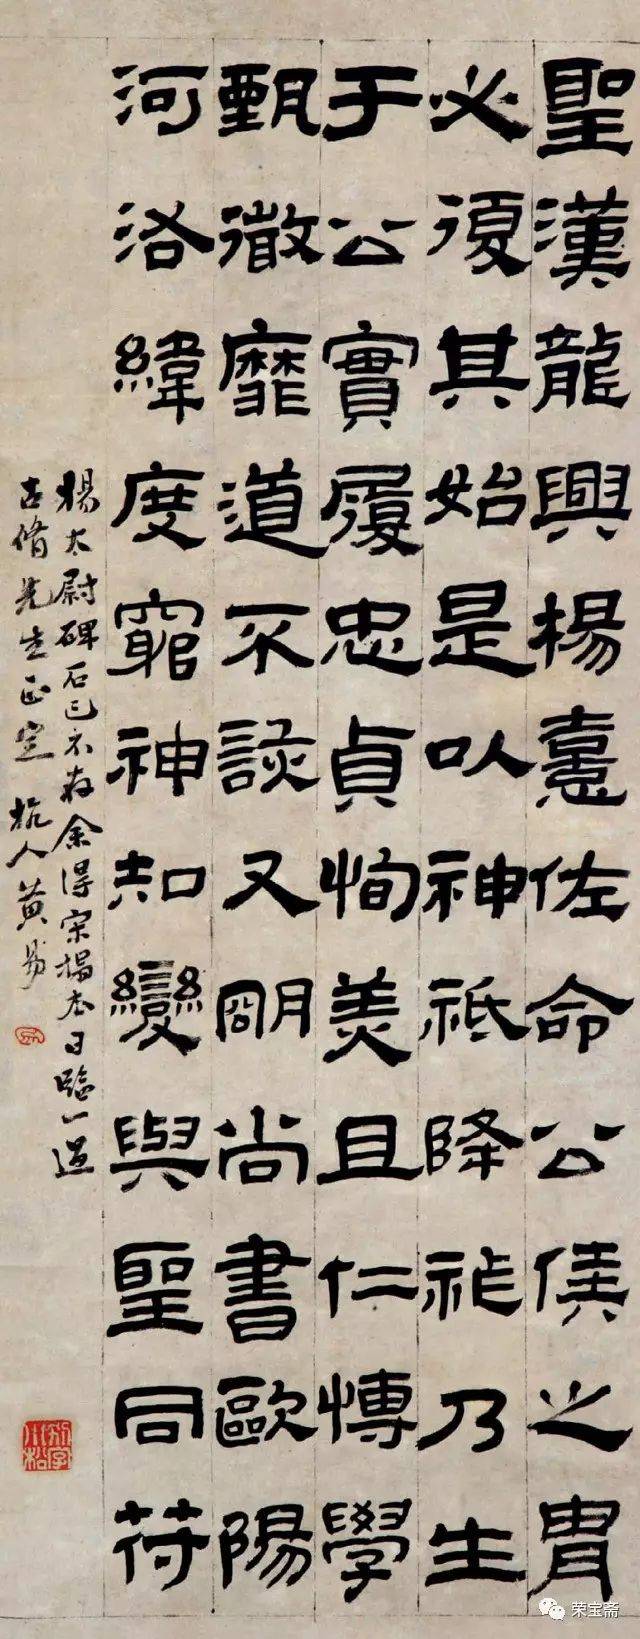 聖漢龍興楊憙佐命公侯之胄
必復其始是以神祇降祉乃生
于公實履忠貞恂美且仁愽學
甄微靡道不該又朙尚書歐陽
河洛緯度窮神知變與聖同符
楊太尉碑石已不存余得宋搨本日臨一過
古脩先生正定 杭人黃易
别字小松
荣宝斋